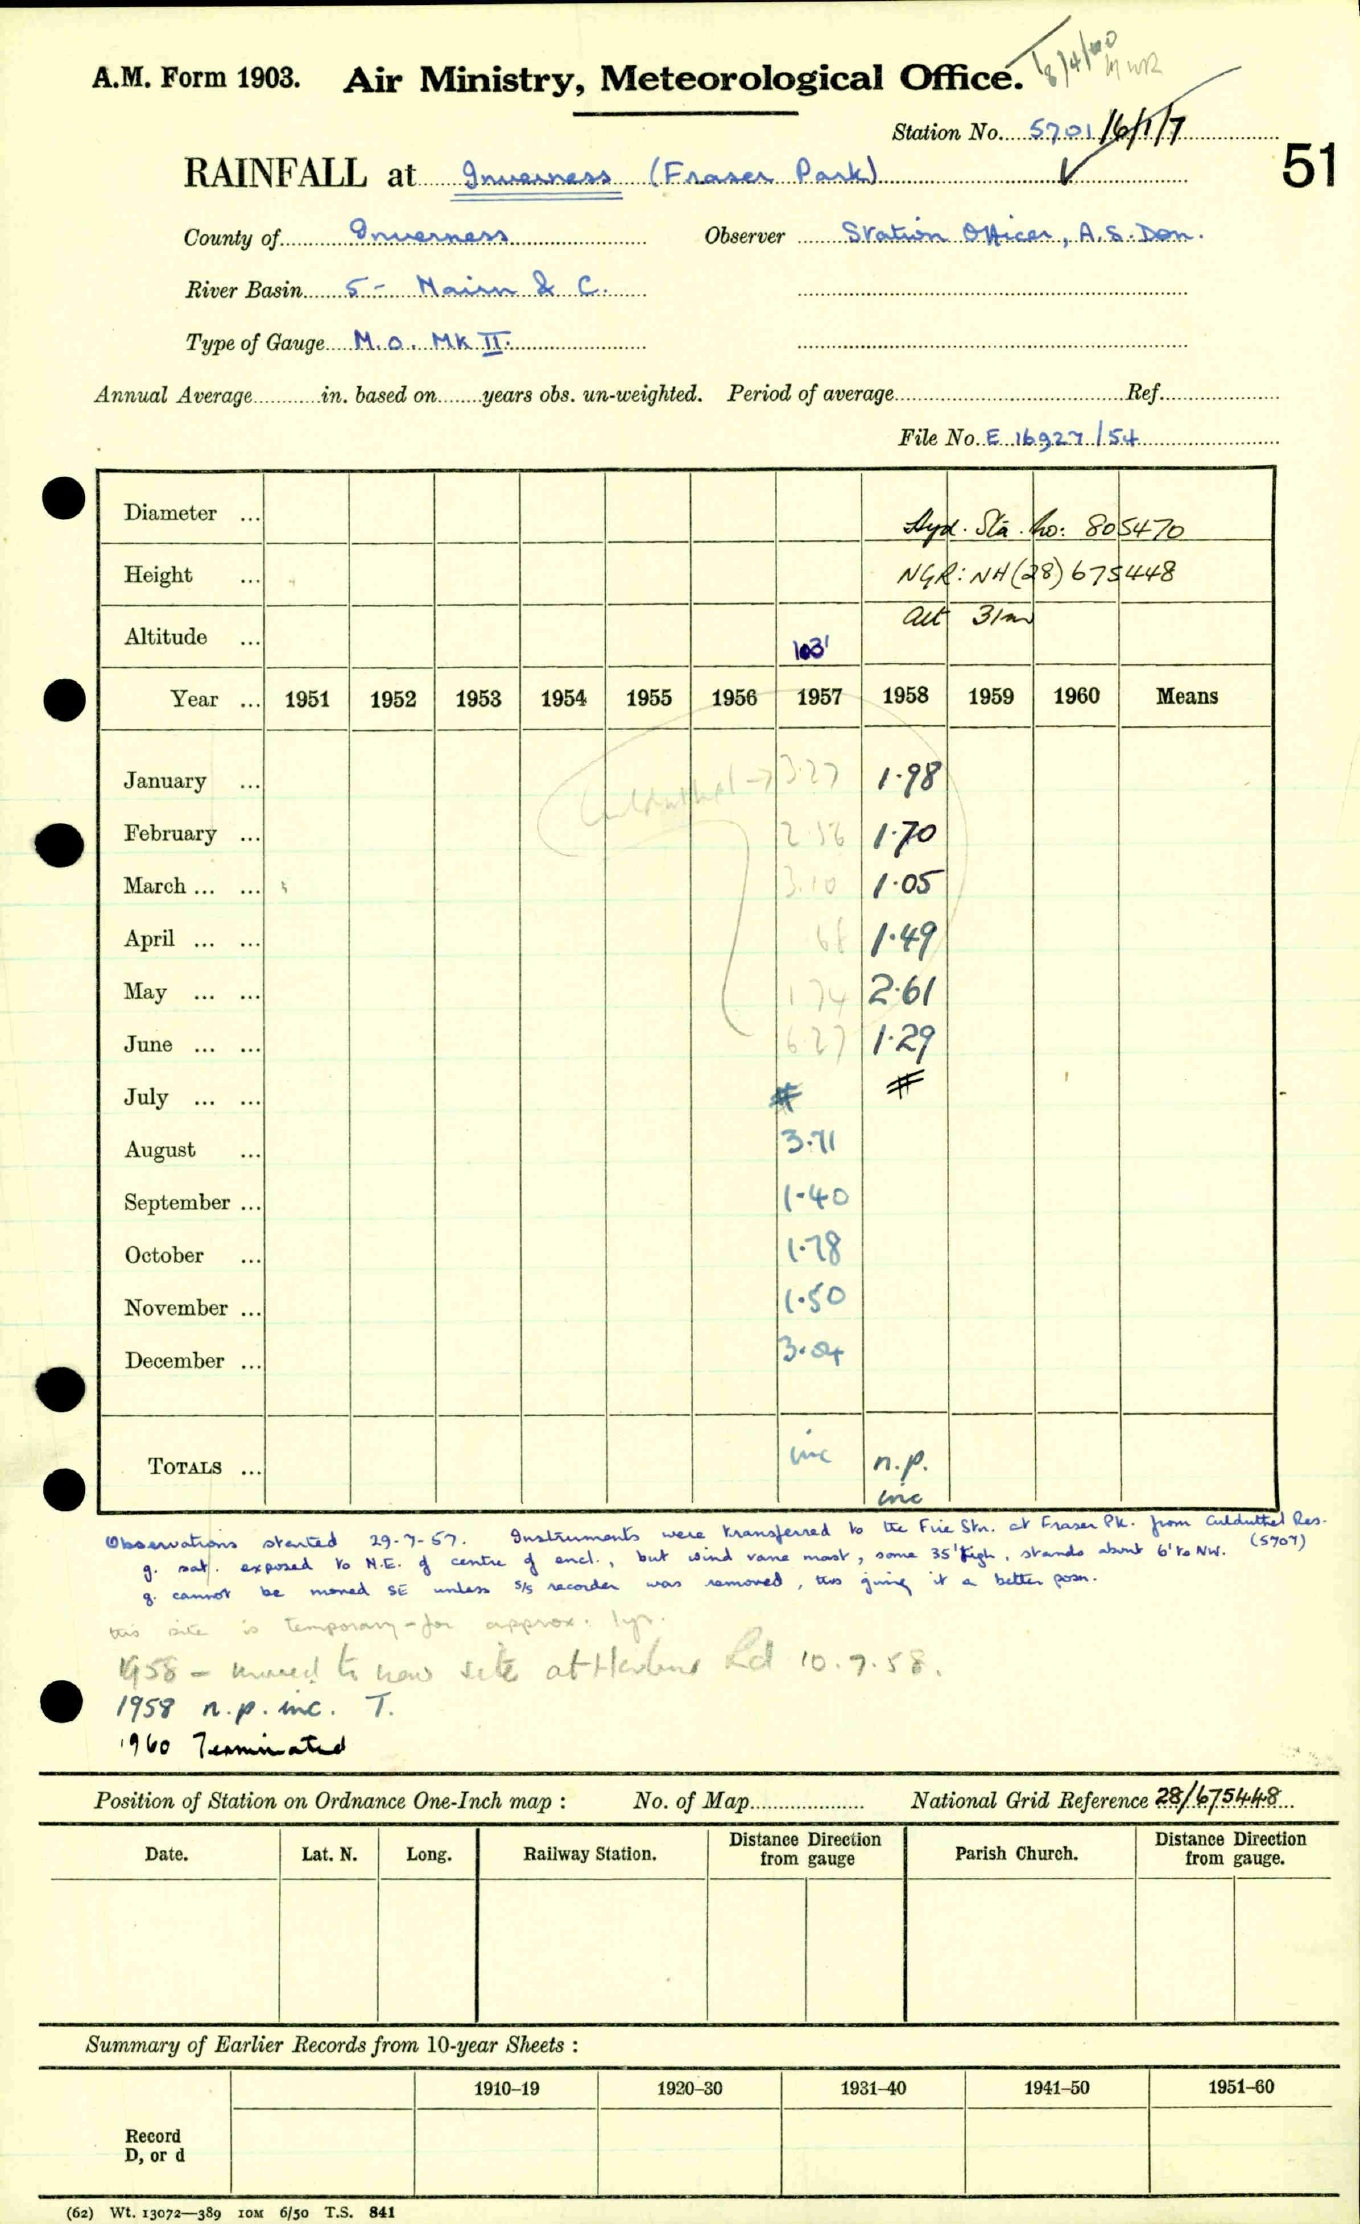 18/4/60
MWR
A.M. Form 1903. Air Ministry, Meteorological Office.
Station No. 5701/6/1/7
51
RAINFALL at Inverness (Fraser Park)
County of Inverness Observer Station Officer, A.S. Don.
River Basin 5 - Nairn & C.
Type of Gauge M.O. MK II.
Annual Average in. based on years obs. un-weighted. Period of average Ref.
File No. E 16927/54
Diameter ... Hyd. Sta. No: 805470
Height ... NGR: NH (28) 675448
Altitude ... 103' alt 31m
Year ... 1951 1952 1953 1954 1955 1956 1957 1958 1959 1960 Means
January ... Culduthel → 3.27 1.98
February ... 2.56 1.70
March ... ... 3.10 1.05
April ... ... 68 1.49
May ... ... 1.74 2.61
June ... ... 6.27 1.29
July ... ... # #
August ... 3.71
September ... 1.40
October ... 1.78
November ... 1.50
December ... 3.04
TOTALS ... inc n.p. inc
Observations started 29-7-57. Instruments were transferred to the Fire Stn. at Fraser Pk. from Culduthel Res. (5707)
g. sat. exposed to N.E. of centre of encl., but wind vane mast, some 35' high, stands about 6' to NW.
g. cannot be moved SE unless s/s recorder was removed, thus giving it a better posn.
this site is temporary - for approx. 1yr.
1958 - moved to new site at Harbour Rd 10.7.58.
1958 n.p. inc. T.
1960 Terminated
Position of Station on Ordnance One-Inch map : No. of Map National Grid Reference 28/675448
Date. Lat. N. Long. Railway Station. Distance Direction from gauge Parish Church. Distance Direction from gauge.
Summary of Earlier Records from 10-year Sheets :
1910–19 1920–30 1931–40 1941–50 1951–60
Record
D, or d
(62) Wt. 13072—389 10M 6/50 T.S. 841